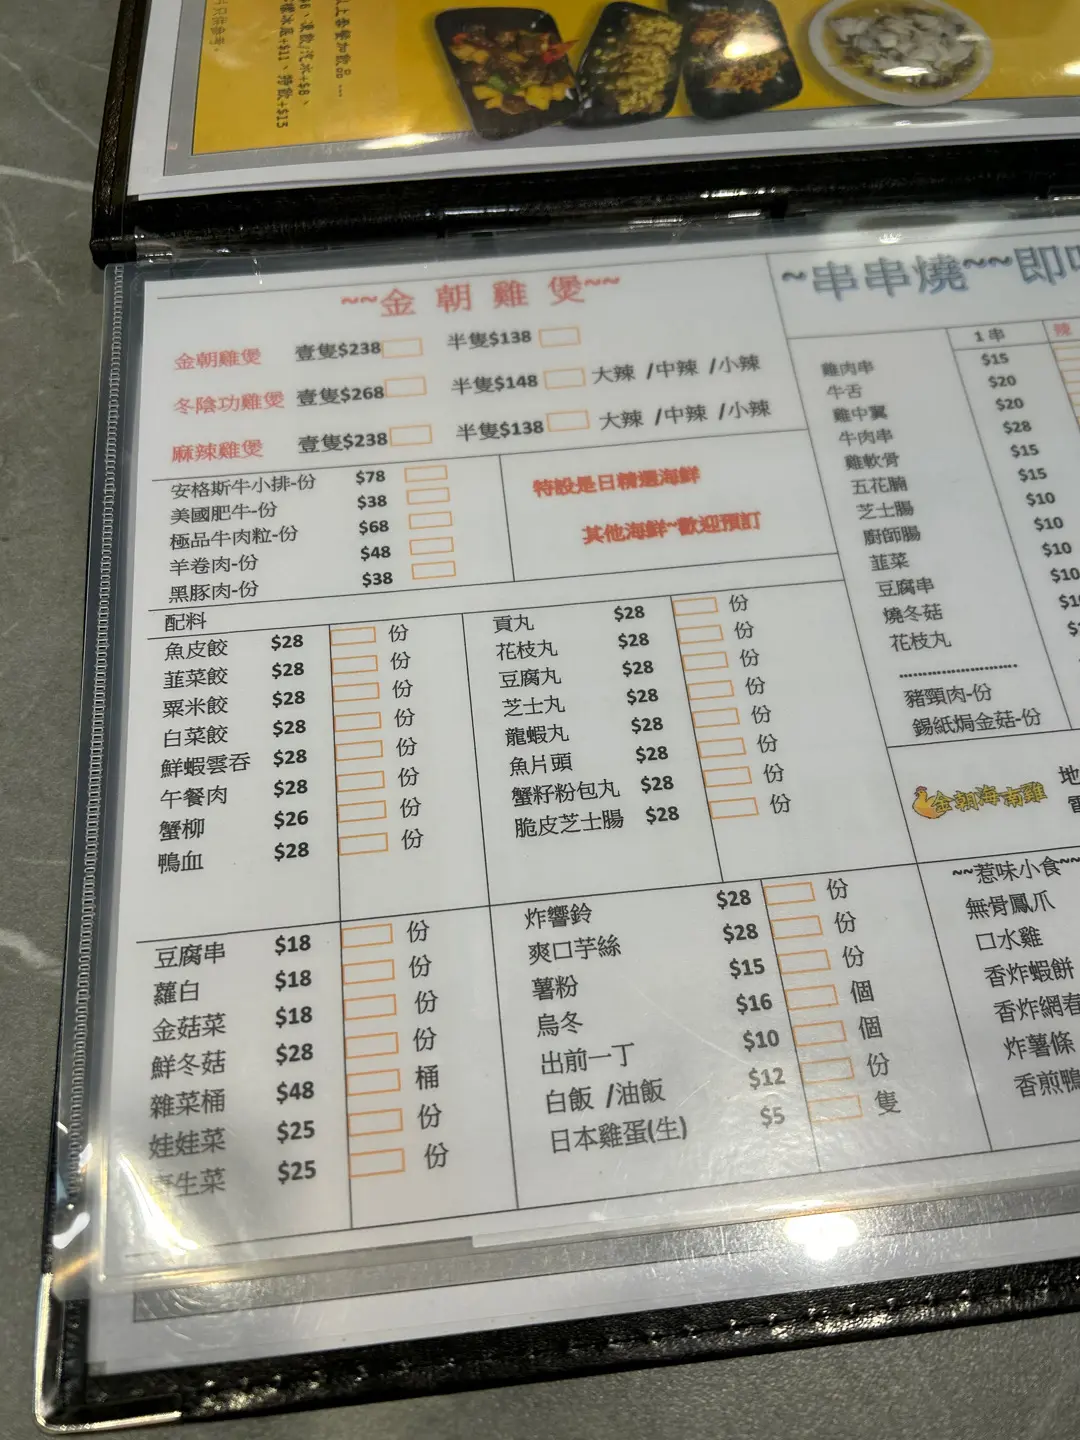 以上套餐加飲品…
凍飲/汽水+$8、
檬冰底+$11、特飲+$13
片只供參考。
~~金朝雞煲~~
金朝雞煲 壹隻$238 半隻$138
冬陰功雞煲 壹隻$268 半隻$148 大辣 /中辣 /小辣
麻辣雞煲 壹隻$238 半隻$138 大辣 /中辣 /小辣
安格斯牛小排-份 $78
美國肥牛-份 $38
極品牛肉粒-份 $68
羊卷肉-份 $48
黑豚肉-份 $38
特設是日精選海鮮
其他海鮮~歡迎預訂
配料
魚皮餃 $28 份
韮菜餃 $28 份
粟米餃 $28 份
白菜餃 $28 份
鮮蝦雲吞 $28 份
午餐肉 $28 份
蟹柳 $26 份
鴨血 $28 份
貢丸 $28 份
花枝丸 $28 份
豆腐丸 $28 份
芝士丸 $28 份
龍蝦丸 $28 份
魚片頭 $28 份
蟹籽粉包丸 $28 份
脆皮芝士腸 $28 份
豆腐串 $18 份
蘿白 $18 份
金菇菜 $18 份
鮮冬菇 $28 份
雜菜桶 $48 桶
娃娃菜 $25 份
生菜 $25 份
炸響鈴 $28 份
爽口芋絲 $28 份
薯粉 $15 份
烏冬 $16 個
出前一丁 $10 個
白飯 /油飯 $12 份
日本雞蛋(生) $5 隻
~串串燒~~即
1 串 辣
雞肉串 $15
牛舌 $20
雞中翼 $20
牛肉串 $28
雞軟骨 $15
五花腩 $15
芝士腸 $10
廚師腸 $10
韮菜 $10
豆腐串 $10
燒冬菇
花枝丸
....................
豬頸肉-份
錫紙焗金菇-份
金朝海南雞
地
~~惹味小食~~
無骨鳳爪
口水雞
香炸蝦餅
香炸網春
炸薯條
香煎鴨